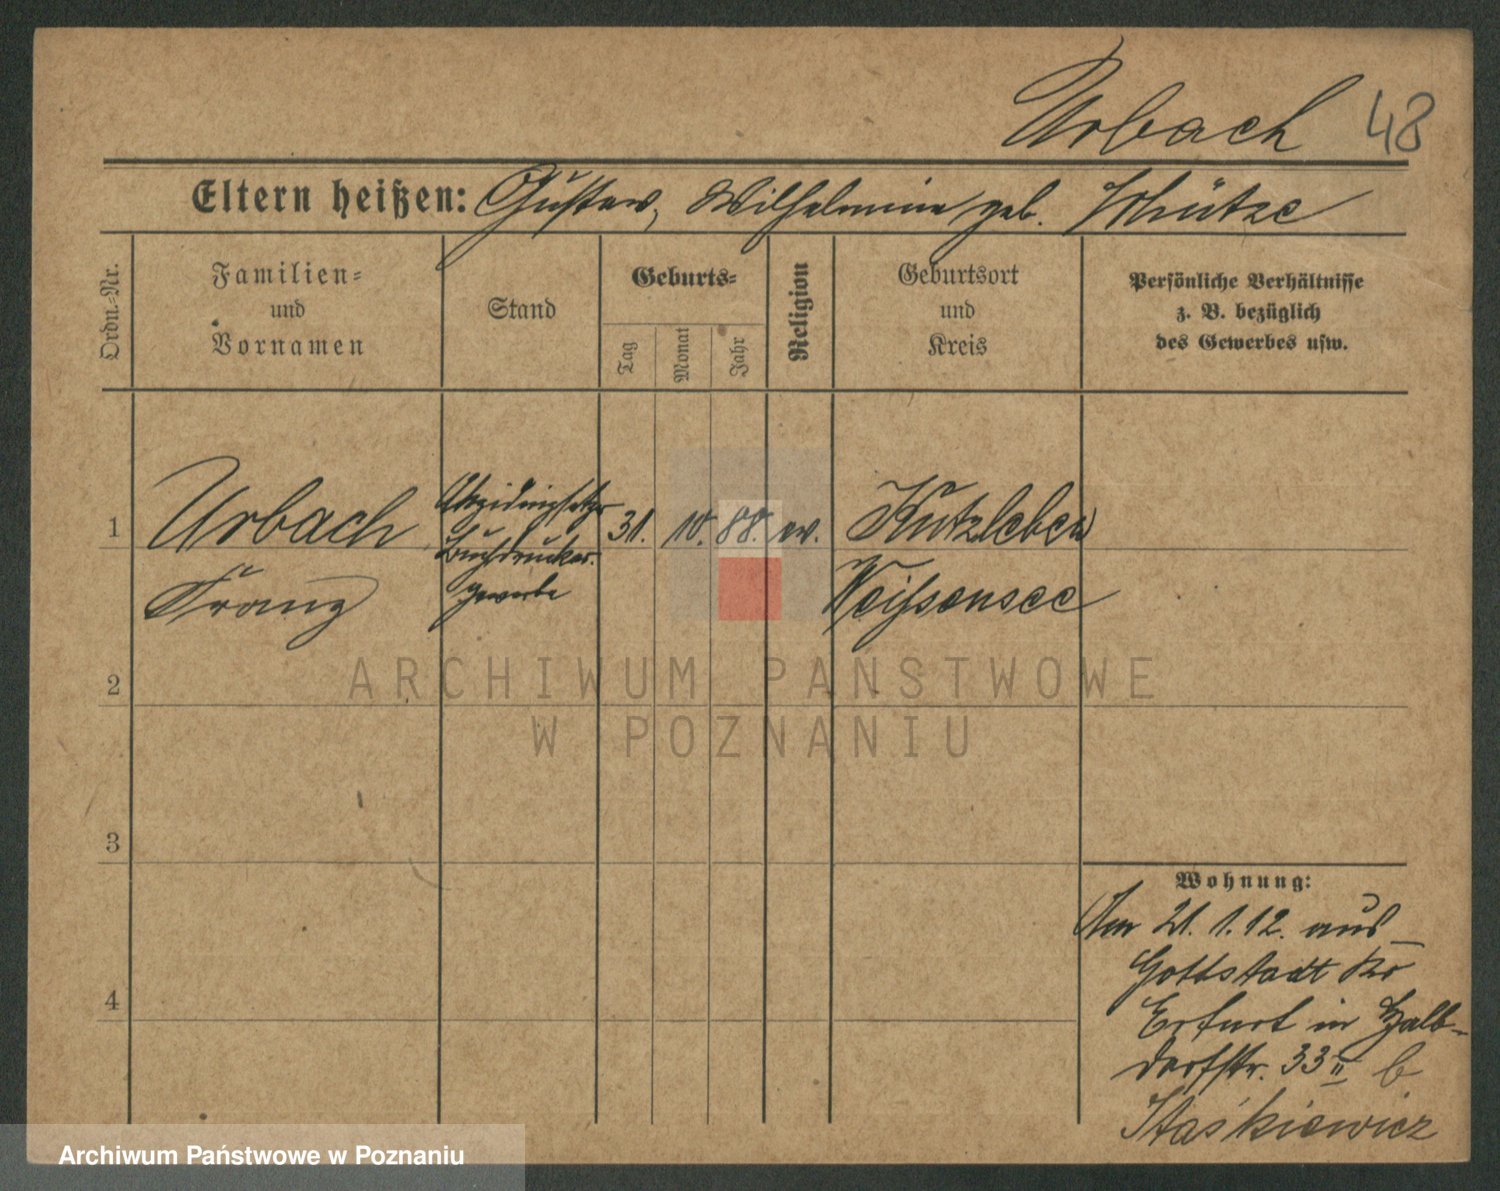 Urbach 48
Eltern heißen: Gustav, Wilhelmine geb. Schütze
Ordn.-Nr.
Familien-
und
Vornamen
Stand
Geburts-
Tag
Monat
Jahr
Religion
Geburtsort
und
Kreis
Persönliche Verhältnisse
z. B. bezüglich
des Gewerbes usw.
1
Urbach
Franz
Buchdrucker.
gewerbe
31. 10. 88. ev.
Kutzleben
Weissensee
2
3
4
Wohnung:
Am 21. 1. 12. aus
Gottstadt Kr
Erfurt in Halb-
dorfstr. 33 II b
Staśkiewicz
ARCHIWUM PAŃSTWOWE
W POZNANIU
Archiwum Państwowe w Poznaniu